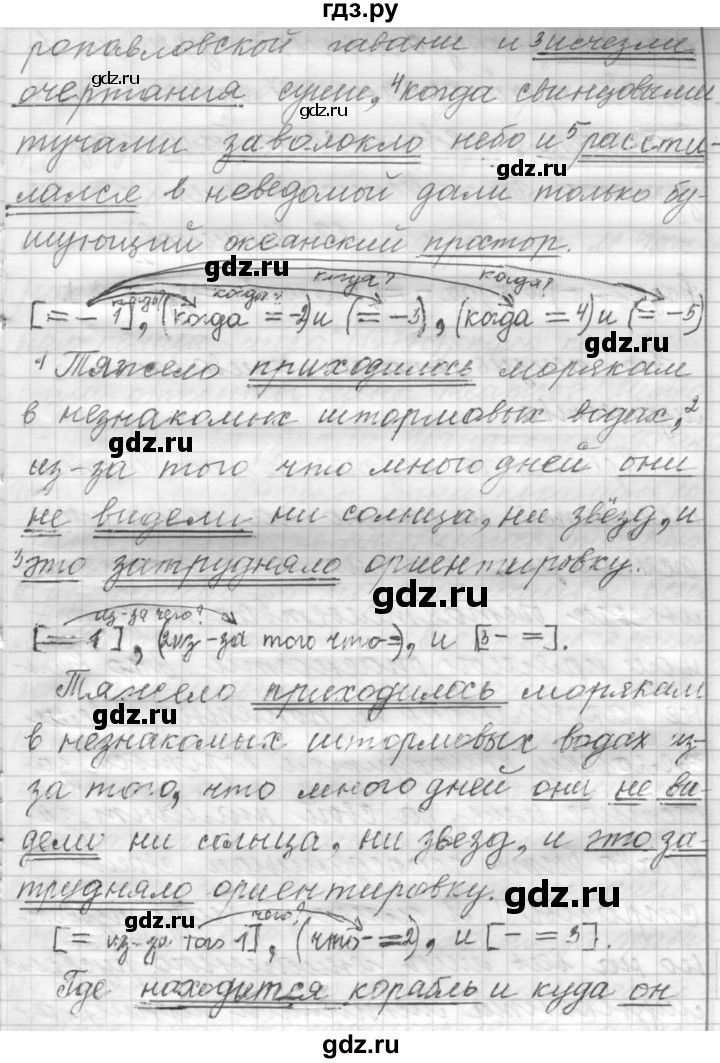 гдз.ру
ропавловской гавани и ³исчезли
очертания суши, ⁴когда свинцовыми
тучами заволокло небо и ⁵рассти-
лался в неведомой дали только бу-
шующий океанский простор.
когда? когда? когда? когда?
[= – 1], (когда = –2) и (= –3), (когда = 4) и (= –5)
¹ Тяжело приходилось морякам
в незнакомых штормовых водах, ²
из-за того что много дней они
не видели ни солнца, ни звёзд, и
³это затрудняло ориентировку.
из-за чего?
[= 1], (2из-за того что – =), и [3 – =].
Тяжело приходилось морякам
в незнакомых штормовых водах из-
за того, что много дней они не ви-
дели ни солнца, ни звезд, и это за-
трудняло ориентировку.
чего?
[= из-за того 1], (что – = 2), и [ – = 3].
Где находится корабль и куда он
gdz.ru
gdz.ru
gdz.ru
gdz.ru
gdz.ru
gdz.ru
gdz.ru
gdz.ru
gdz.ru
gdz.ru
gdz.ru